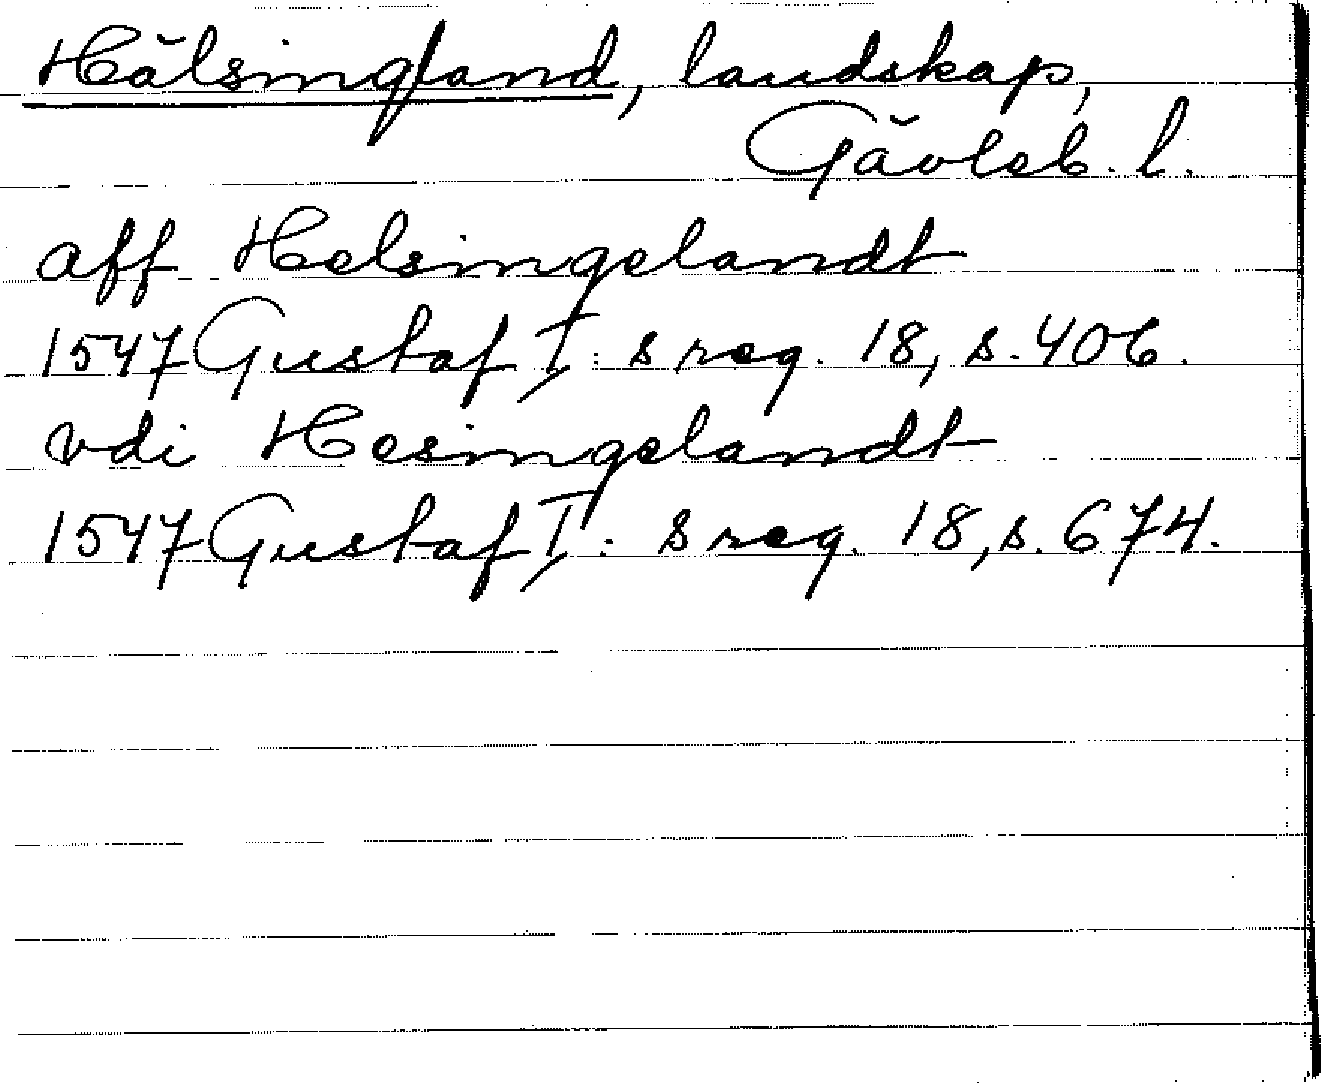 Hälsingland, landskap,
Gävleb. l.
aff Helsingelandt
1547 Gustaf I: s reg. 18, s. 406.
vdi Hesingelandt
1547 Gustaf I: s reg. 18, s. 674.